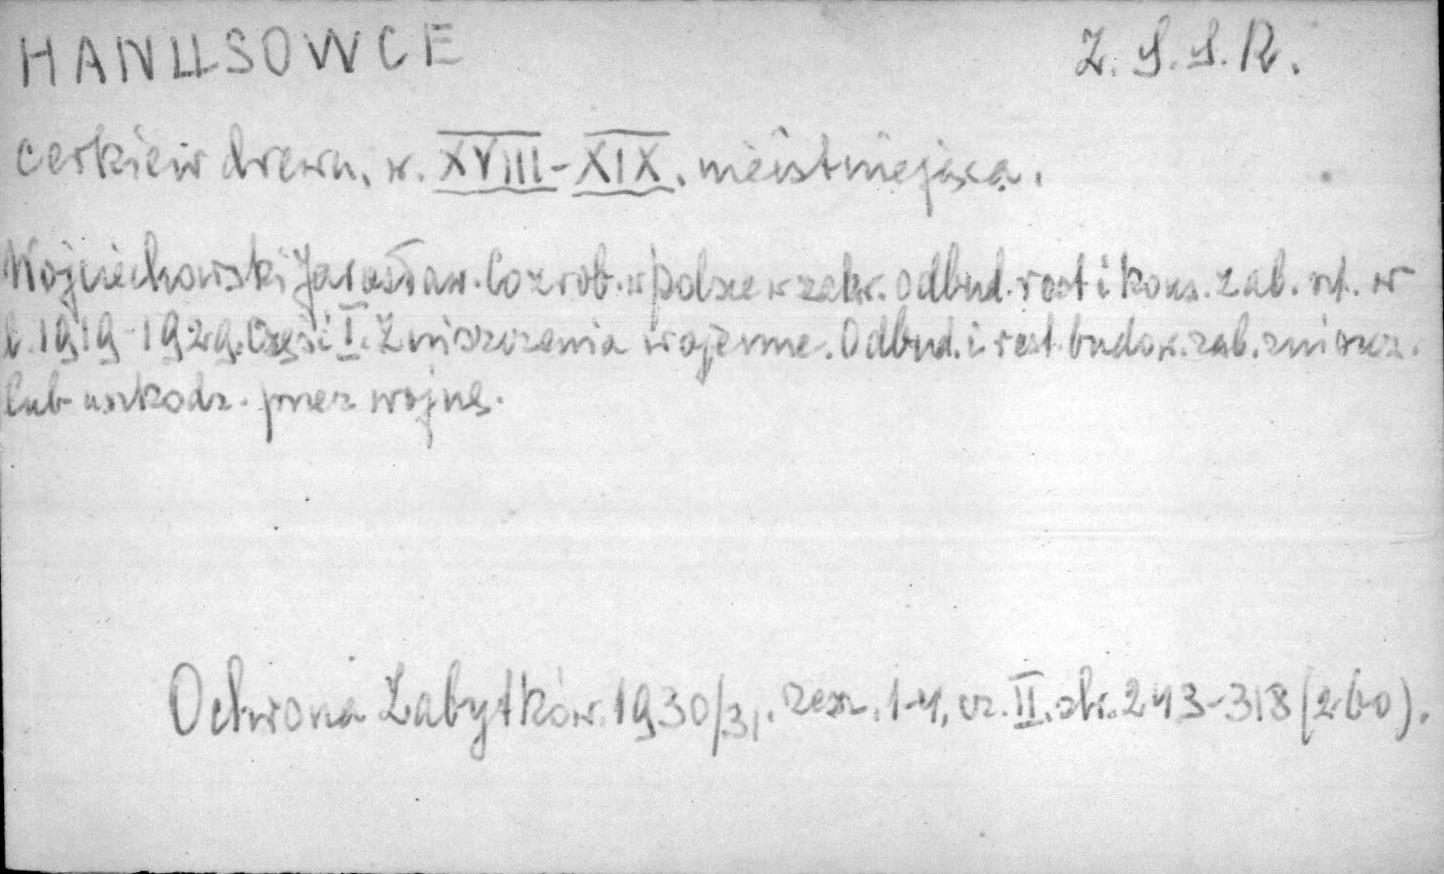 HANUSOWCE Z.S.S.R.
cerkiew drewn. w. XVIII-XIX. nieistniejąca.
Wojciechowski Jarosław. Co zrob. w Polsce w zakr. odbud. rest i kons. zab. szt. w
l. 1919-1929. Część I. Zniszczenia wojenne. Odbud. i rest. budow. zab. zniszcz.
lub uszkodz. przez wojnę.
Ochrona Zabytków. 1930/31. zesz. 1-4, cz. II. str. 243-318 (260).